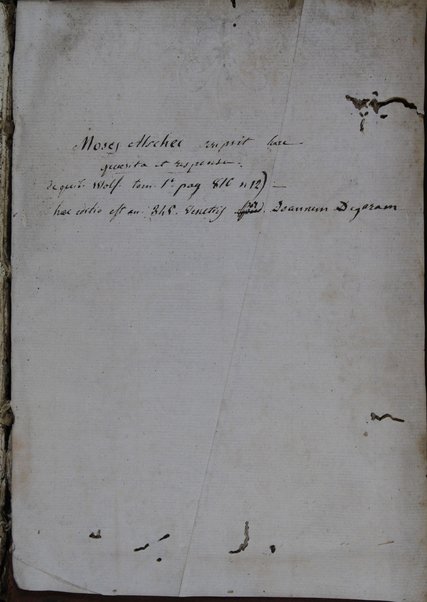 Moses Alschec scripsit haec
quesita et responsa.
de quib. Wolf tom 1.º pag 816 n 12) —
haec editio est an. 848. Venetijs apud Joannem Degaram